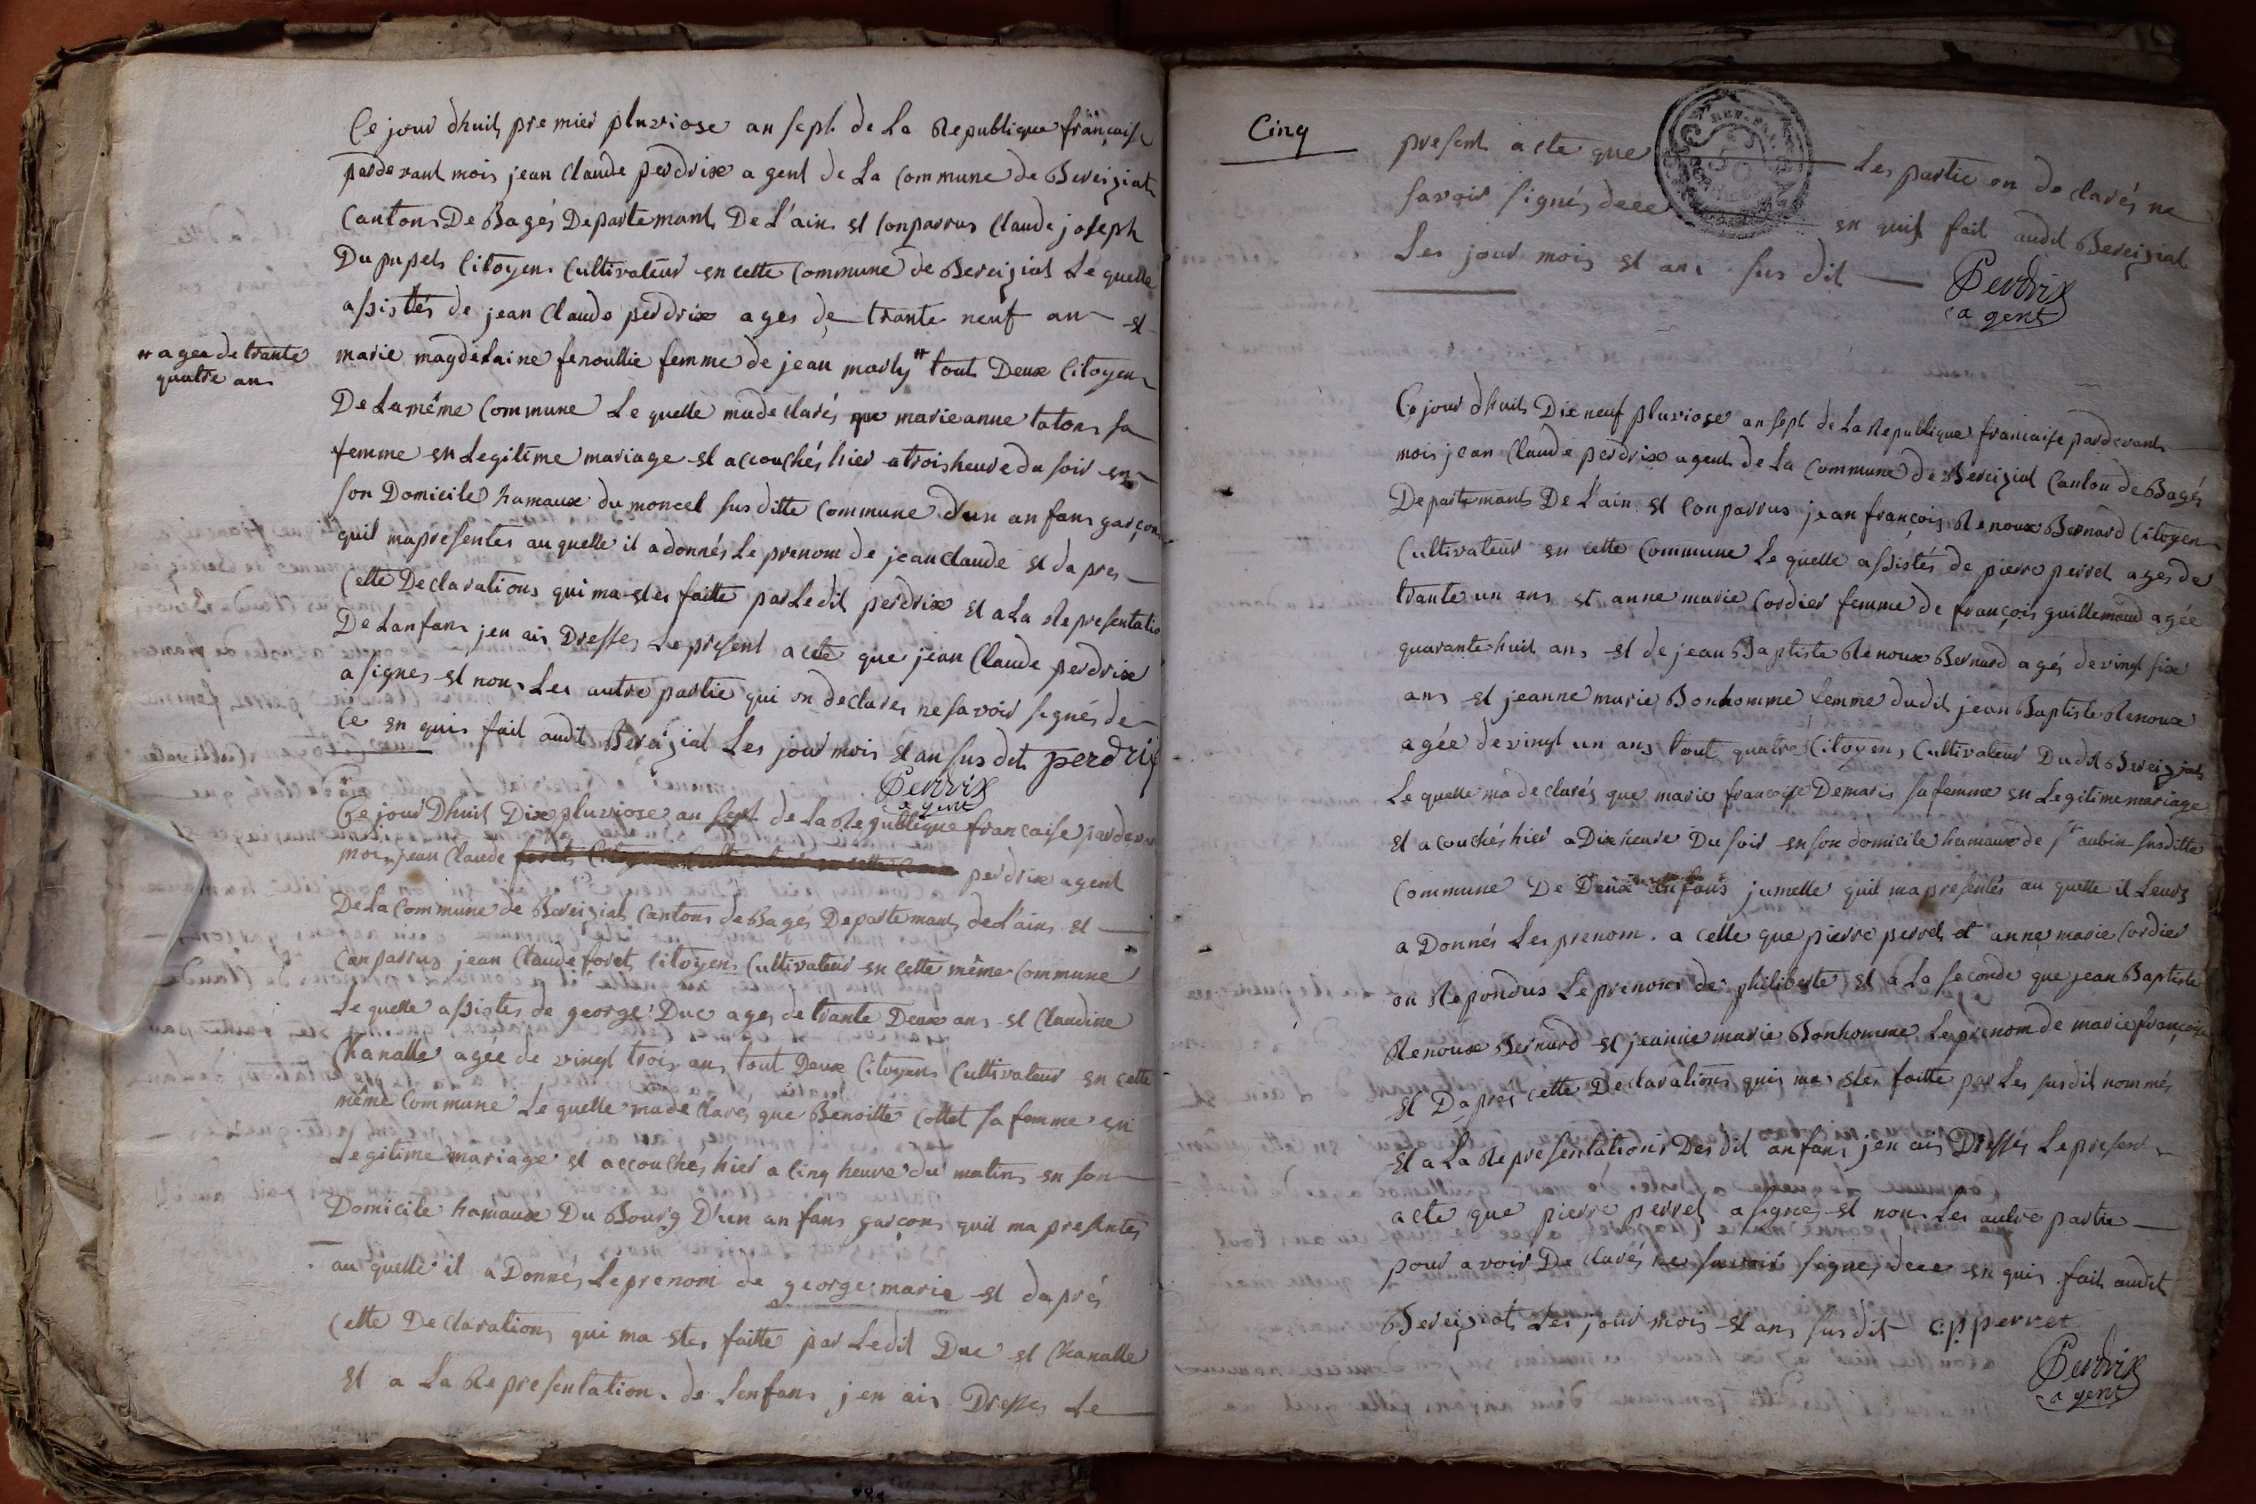 Ce jour dhuit premier pluviose an sept de La Republique française
parde vant mois jean Claude perdrix agent de La Commune de Bereiziat
Cantons De Bagés Departemant De L'ain et Conparrus Claude joseph
Dupupet Citoyens Cultivateur en cette Commune de Bereiziat Le quelle
assistés de jean Claude perdrix ages de trante neuf an et
marie magdelaine fenoullie femme de jean marly # tout Deux Citoyens
# agea de trante
quatre an
De La même Commune Le quelle made clarés que marieanne tatons sa
femme en Legitime mariage et accouchés hier a trois heure du soir en
son Domicile hamaux du moncel sus ditte Commune d'un anfans garçons
quil mapresentes au quelle il adonnés Le prenom de jean Claude et dapres
Cette Declarations qui ma etes faitte par Ledit perdrix et a La Representatio
De Lanfans jen ais Dresses Le present acte que jean Claude perdrix
a signes et non Les autre partie qui on declares ne savoir signés de
Ce en quis fait audit Bereiziat Les jour mois et an sus dit perdrix
Perdrix
agent
Ce jour Dhuit Dix pluviose an sept de La Republique francaise parde
mois jean Claude perdrix agent
De La Commune de Bereiziat Cantons de Bagés Departemant de L'ain et
Conparrus jean Claude foret Citoyens Cultivateur en cette même Commune
Le quelle assistes de george Duc ages de trante Deux ans et Claudine
Chanalle agée de vingt trois ans tout Deux Citoyens Cultivateur en cette
même Commune Le quelle made clarés que Benoitte Collet sa femme en
Legitime mariage et accouchés hier a Cinq heure du matins en son
Domicile hamaux Du Bourg D'un anfans garçons quil ma presentes
au quelle il a Donnés Le prenom de george marie et daprés
Cette Declarations qui ma etes faitte par Ledit Duc et Chanalle
et a La Representation de Lenfans jen ais Dresses Le
Cinq
present acte que Les partie on de clarés ne
savoir signés dece en quis fait audit Bereiziat
Les jour mois et ans sus dit
Perdrix
agent
Ce jour dhuit Dix neuf pluviose an sept de La Republique francaise pardevant
mois jean Claude perdrix agent de La Commune de Bereiziat Canton de Bagés
Departemant De L'ain et Conparrus jean françois Renoux Bernard Citoyen
Cultivateur en cette Commune Le quelle assistés de pierre perret ages de
trante un ans et anne marie Cordier femme de françois guillemaud agée
quarante huit ans et de jean Baptiste Renoux Bernard agés de vingt six
ans et jeanne marie Bonhomme femme dudit jean Baptiste Renoux
agée de vingt un ans tout quatre Citoyens Cultivateur Dudit Bereiziat
Le quelle ma de clarés que marie françoise Demaris sa femme en Legitime mariage
et accouchés hier a Dix heure Du soir en son domicile hamaux de st aubin susditte
Commune De Deux anfans jumelle quil mapresentés au quelle il Leurs
a Donnés Les prenom a celle que pierre perret et anne marie Cordier
on Repondus Le prenom de philiberte et a La seconde que jean Baptiste
Renoux Bernard et jeanne marie Bonhomme Le prenom de marie françoise
et Dapres cette Declarations quis ma etes faitte par Les susdit nommés
et a La Representations Des dit anfans jen ais Dressés Le present
acte que pierre perret a signes et non Les autre partie
pour avoir De clarés ne savoir signes dece en quis fait audit
Bereiziat Les jour mois et ans sus dit p perret
Perdrix
agent